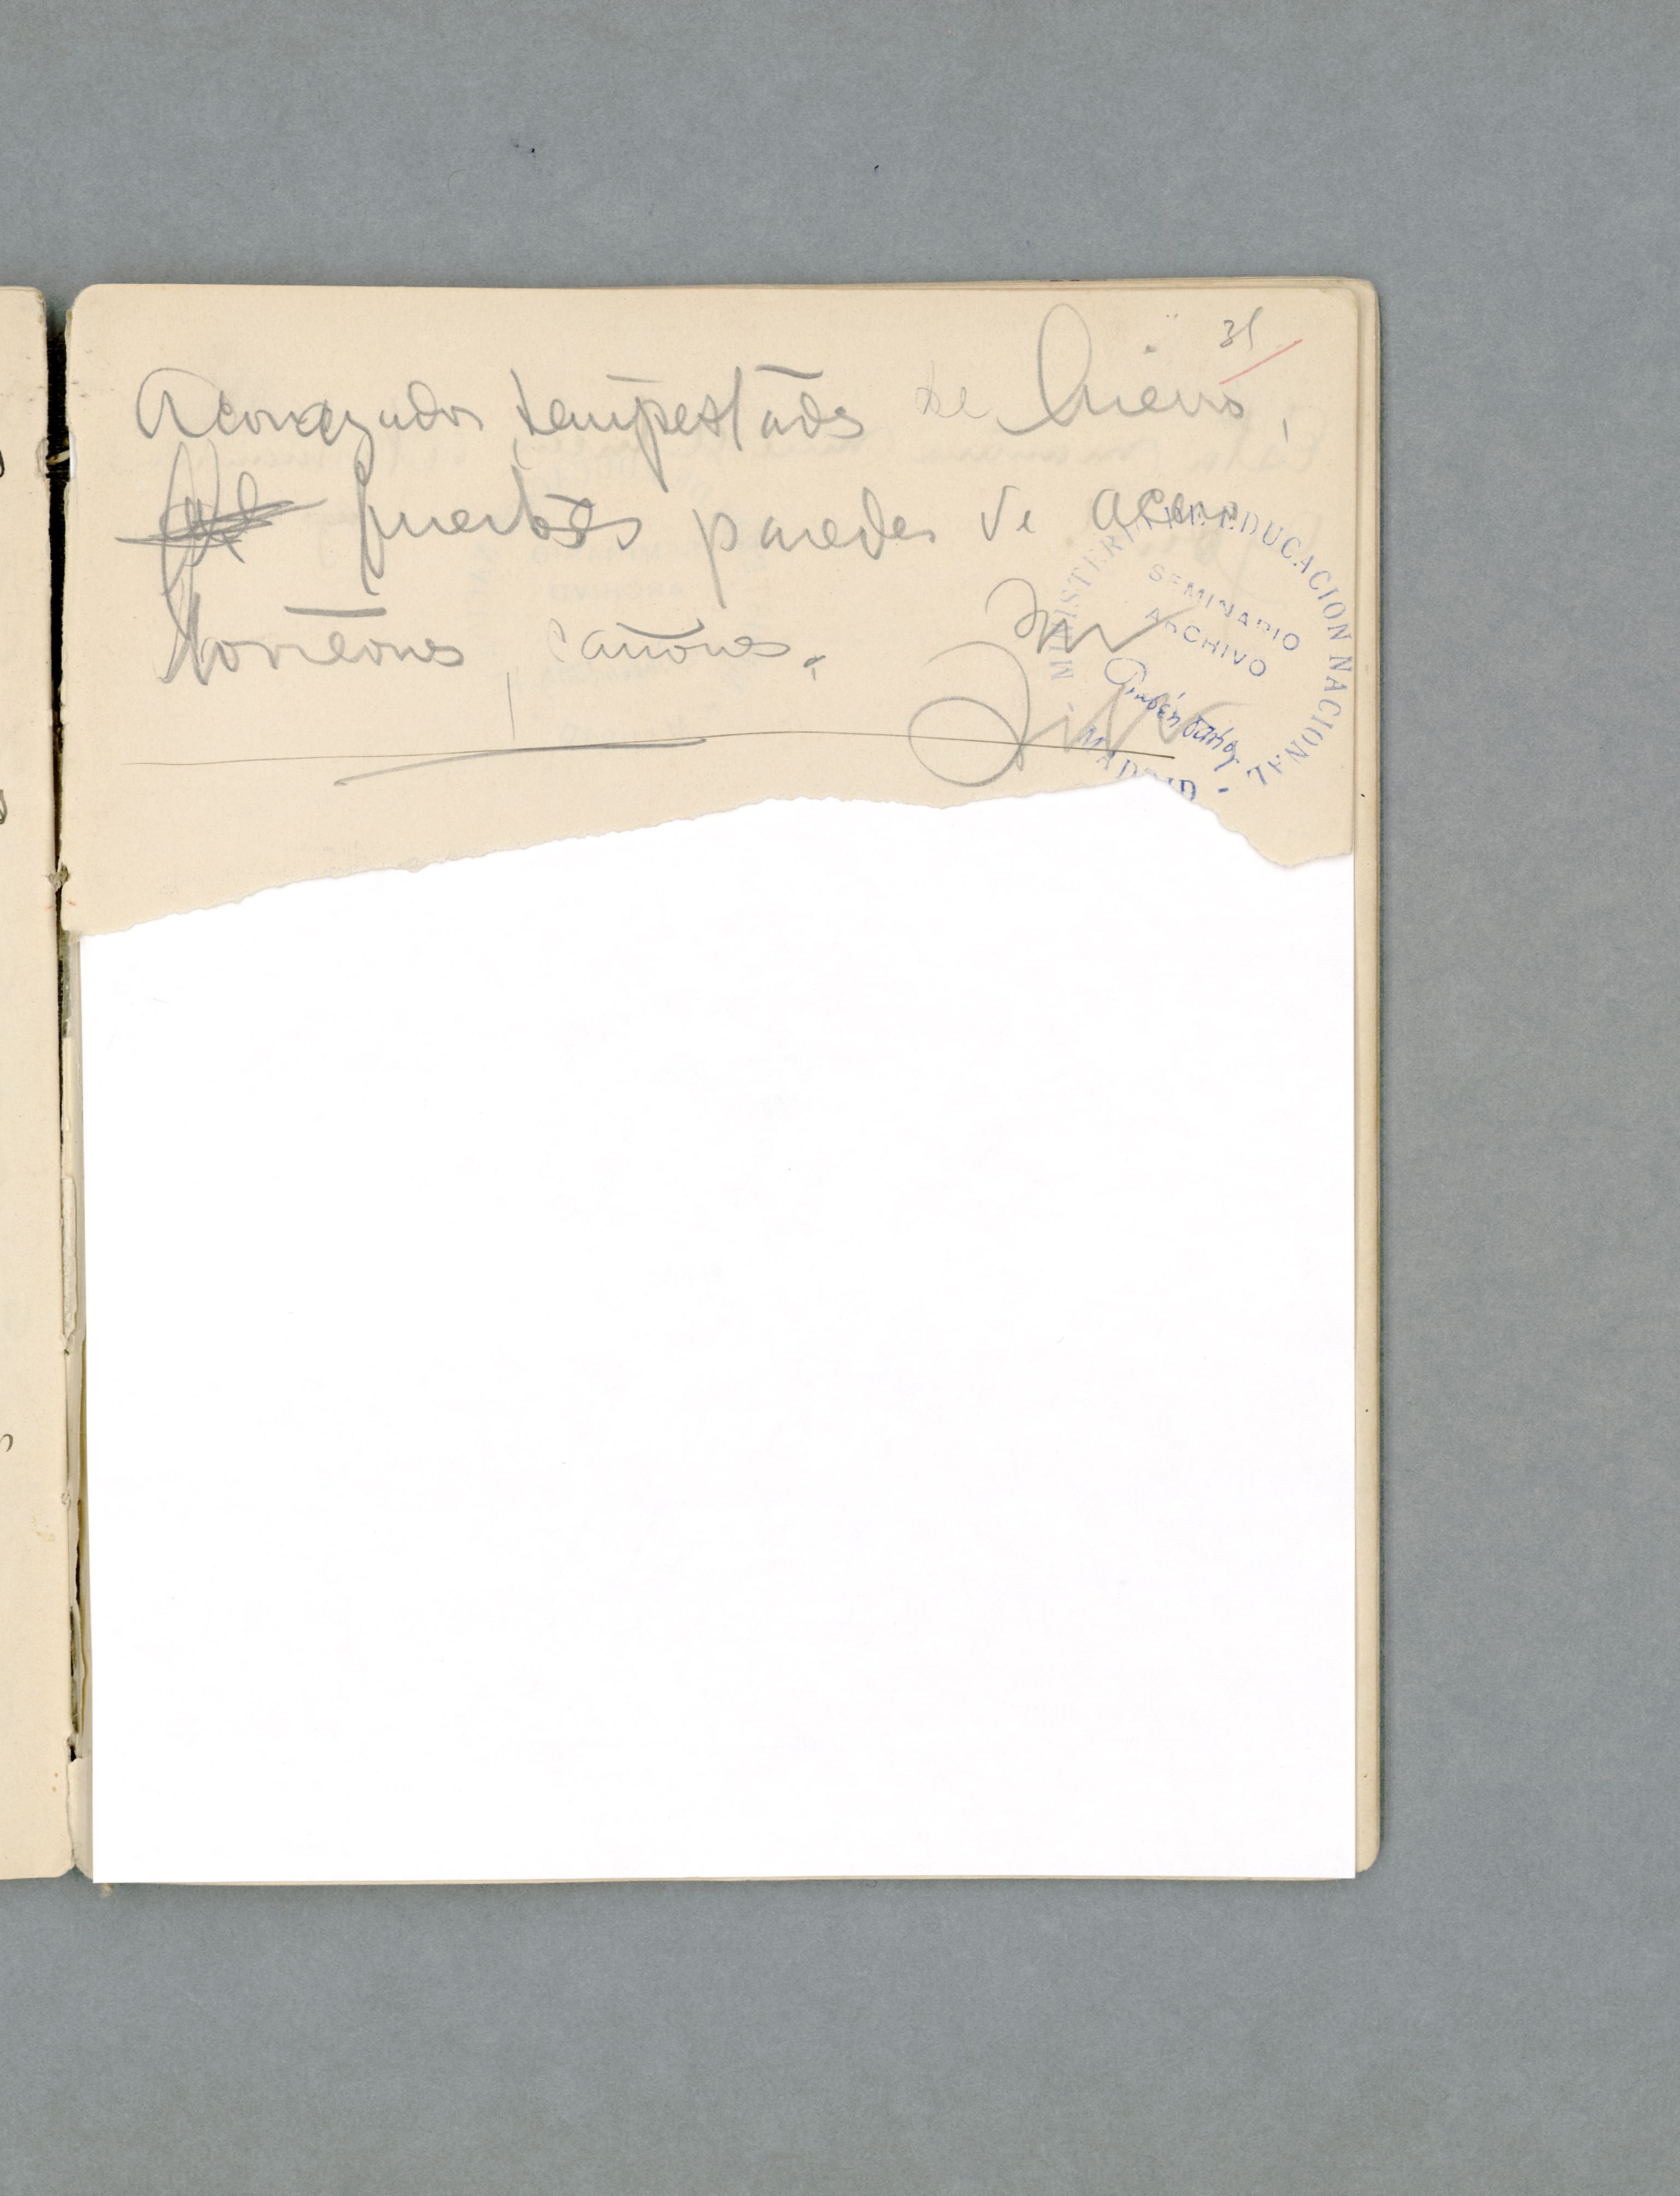 31
Acorazados, tempestads de hierro,
fuertes paredes de acero
torreones, cañones.
MINISTERIO DE EDUCACION NACIONAL
SEMINARIO
ARCHIVO
Rubén Darío
- MADRID -